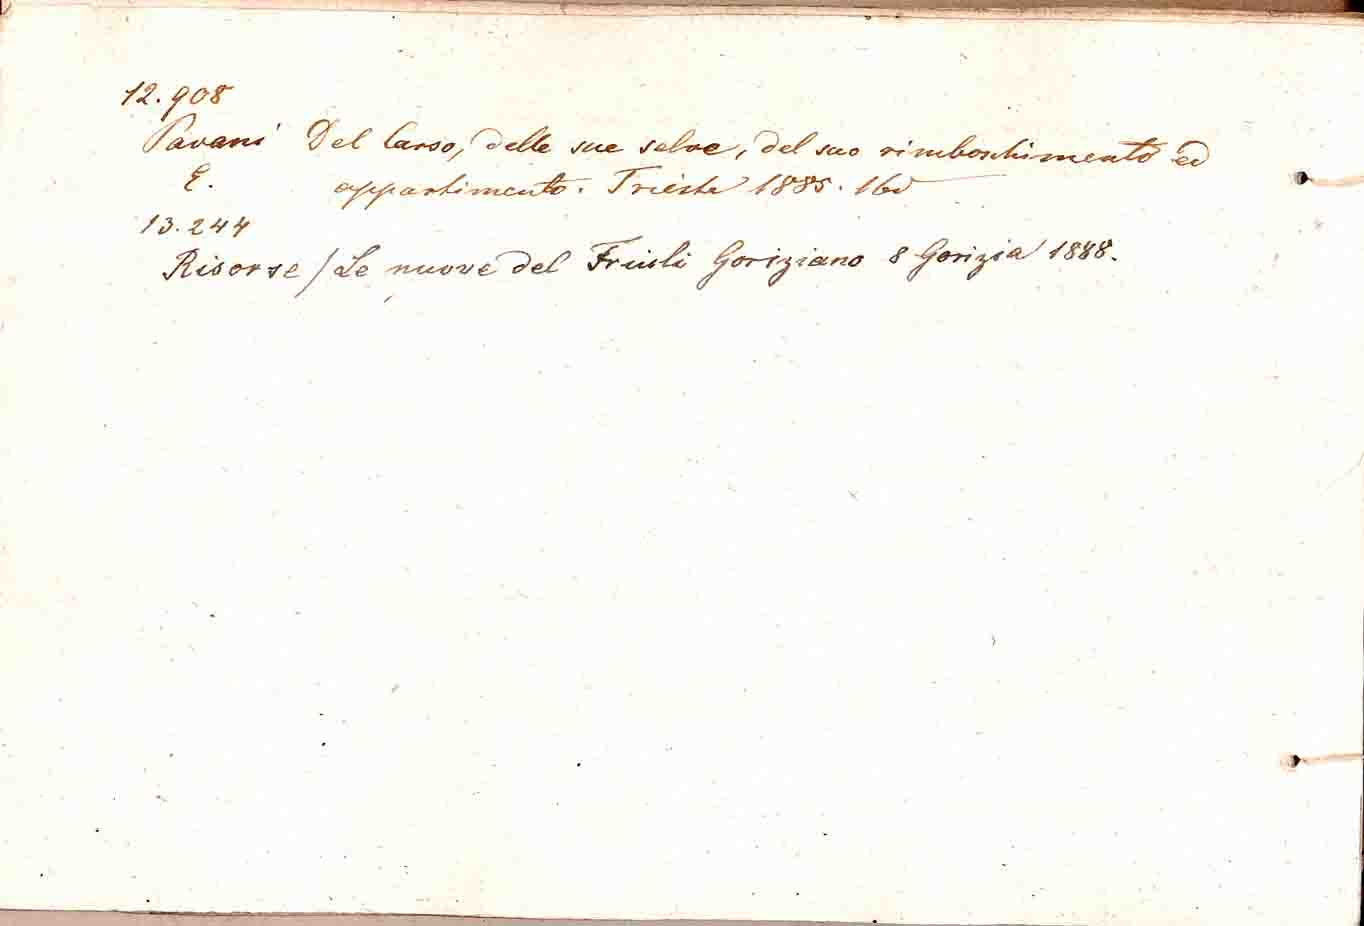 12.908
Pavani Del Carso, delle sue selve, del suo rimboschimento ed
E. appartimento. Trieste 1885. 16o
13.244
Risorse / Le nuove del Friuli Goriziano 8 Gorizia 1888.